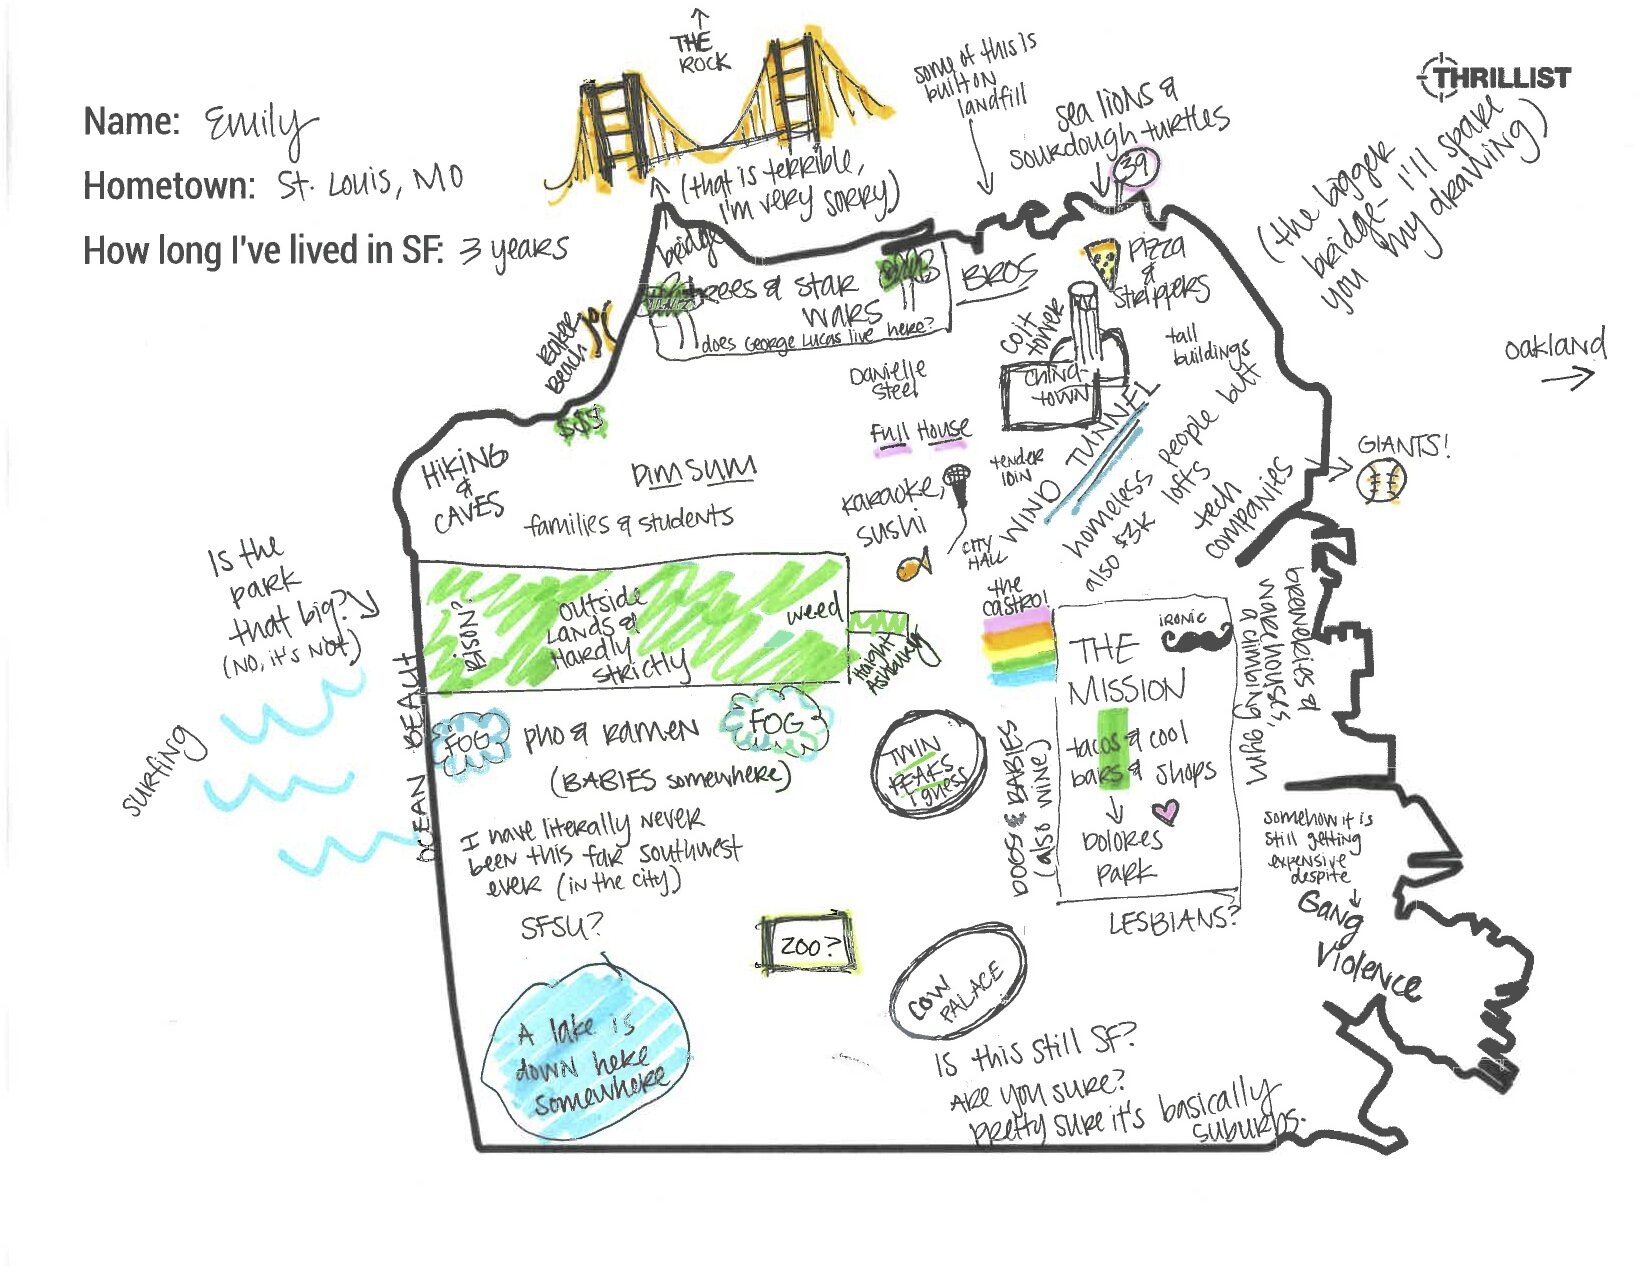 THRILLIST
Name: Emily
Hometown: St. Louis, MO
How long I've lived in SF: 3 years
THE
ROCK
(that is terrible,
I'm very sorry)
bridge
some of this is
built on
landfill
sea lions &
sourdough turtles
39
(the bigger
bridge - I'll spare
you my drawing)
Oakland
trees & star
wars
does George Lucas live here?
BROS
Pizza
&
strippers
Baker
Beach
$$$
coit
tower
CHINA-
TOWN
tall
buildings
Danielle
Steel
Full House
tender
loin
WIND TUNNEL
homeless people but
also $3K lofts
tech
companies
GIANTS!
HIKING
&
CAVES
DIM SUM
families & students
karaoke,
sushi
CITY
HALL
Is the
park
that big?
(NO, it's NOT)
BISON?
outside
Lands &
Hardly
strictly
weed
Haight
Ashbury
the
castro!
THE
MISSION
ironic
tacos & cool
bars & shops
Dolores
Park
LESBIANS?
breweries &
warehouses,
a climbing gym
surfing
OCEAN BEACH
FOG
pho & ramen
FOG
(BABIES somewhere)
TWIN
PEAKS
I guess
DOGS & BABIES
(also wine)
I have literally never
been this far southwest
ever (in the city)
SFSU?
ZOO?
COW
PALACE
A lake is
down here
somewhere
somehow it is
still getting
expensive
despite
Gang
Violence
Is this still SF?
Are you sure?
Pretty sure it's basically
suburbs.